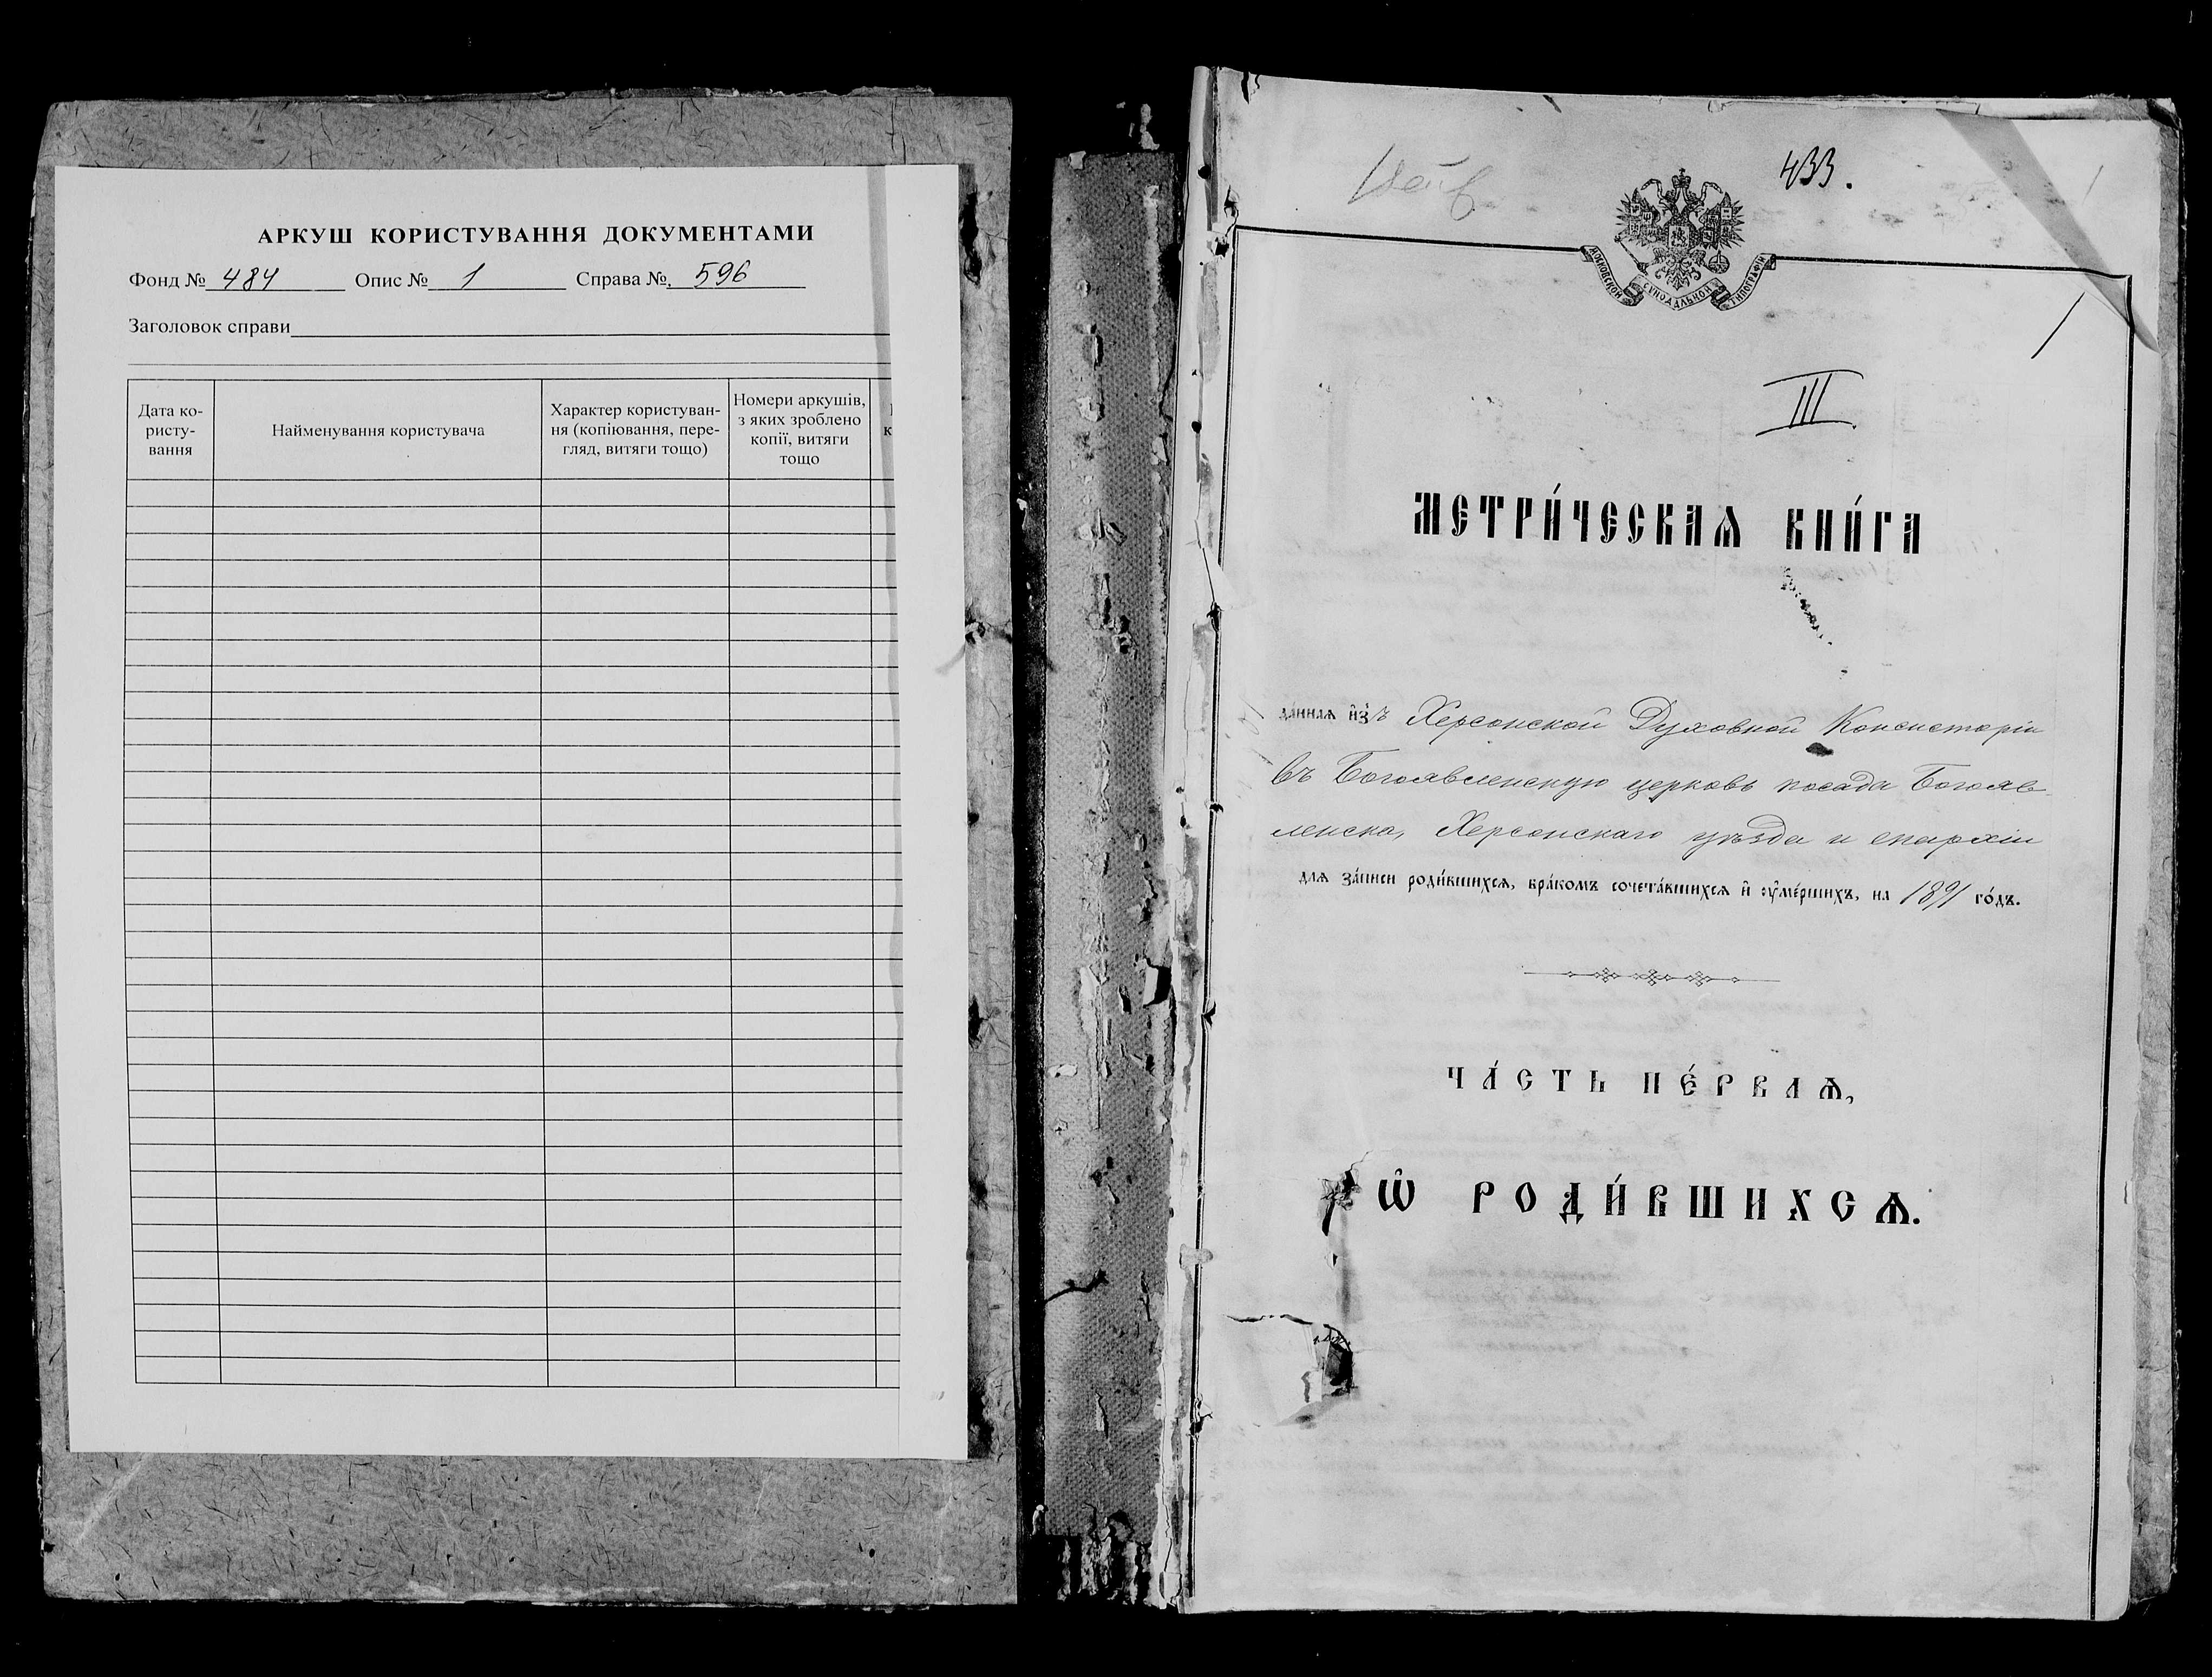 АРКУШ КОРИСТУВАННЯ ДОКУМЕНТАМИ
Фонд № 484 Опис № 1 Справа № 596
Заголовок справи
Дата ко-
ристу-
вання
Найменування користувача
Характер користуван-
ня (копіювання, пере-
гляд, витяги тощо)
Номери аркушів,
з яких зроблено
копії, витяги
тощо
433.
МОСКОВСКОЙ СУНОДАЛЬНОЙ ТИПОГРАФІИ
1
III
МЕТРИ́ЧЕСКАѦ КНИ́ГА
да́ннаѧ и҆з̾ъ Херсонской Духовной Консисторіи
въ Богоявленскую церковь посада Богояв-
ленска, Херсонскаго уѣзда и епархіи
для за́писи роди́вшихсѧ, бра́комъ сочета́вшихсѧ и҆ ᲂу҆ме́ршихъ, на 1891 го́дъ.
ЧА́СТЬ ПЕ́РВАѦ,
Ѡ҆ РОДИ́ВШИХСѦ.